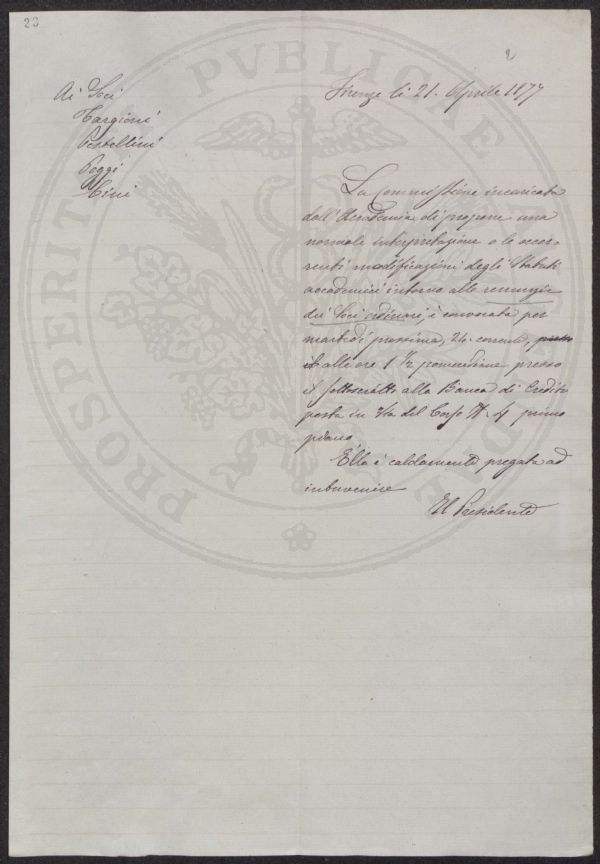 23
2
Ai Soci
Targioni
Pestellini
Poggi
Cini
Firenze li 21. Aprile 1877
La Commissione incaricata
dall'Accademia di proporre una
normale interpretazione o le occor-
renti modificazioni degli Statuti
accademici intorno alle
dei Soci ordinari, è convocata per
martedì prossimo, 24 corrente,
alle ore 1 1/2 pomeridiane presso
il sottoscritto alla Banca di Credito
posta in Via del Corso N. 4 primo
piano.
Ella è caldamente pregata ad
intervenire
Il Presidente
PROSPERITATI PVBLICAE